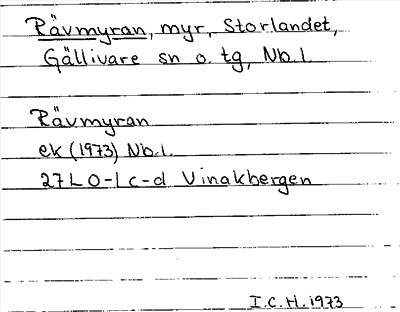 Rävmyran, myr, Storlandet,
Gällivare sn o. tg, Nb.l.
Rävmyran
ek (1973) Nb.l.
27L 0-1c-d Vinakbergen
I.C.H. 1973